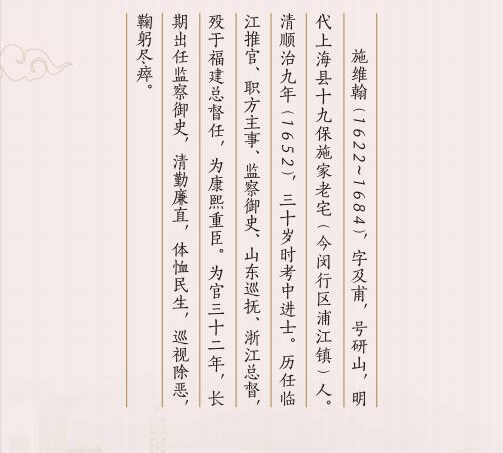 施维翰（1622~1684），字及甫，号研山，明
代上海县十九保施家老宅（今闵行区浦江镇）人。
清顺治九年（1652），三十岁时考中进士。历任临
江推官、职方主事、监察御史、山东巡抚、浙江总督，
殁于福建总督任，为康熙重臣。为官三十二年，长
期出任监察御史，清勤廉直，体恤民生，巡视除恶，
鞠躬尽瘁。